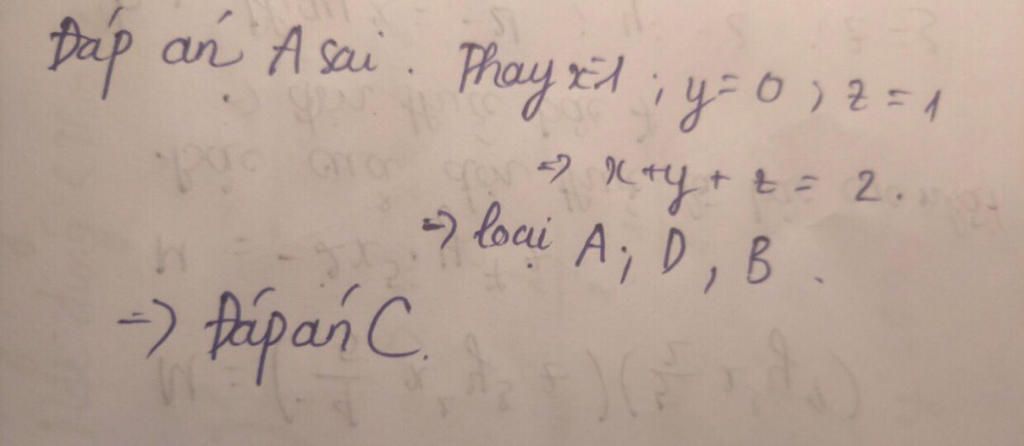 Đáp án A sai. Thay x=1; y=0; z=1
=> x+y+z=2.
=> loại A; D, B.
=> Đáp án C.